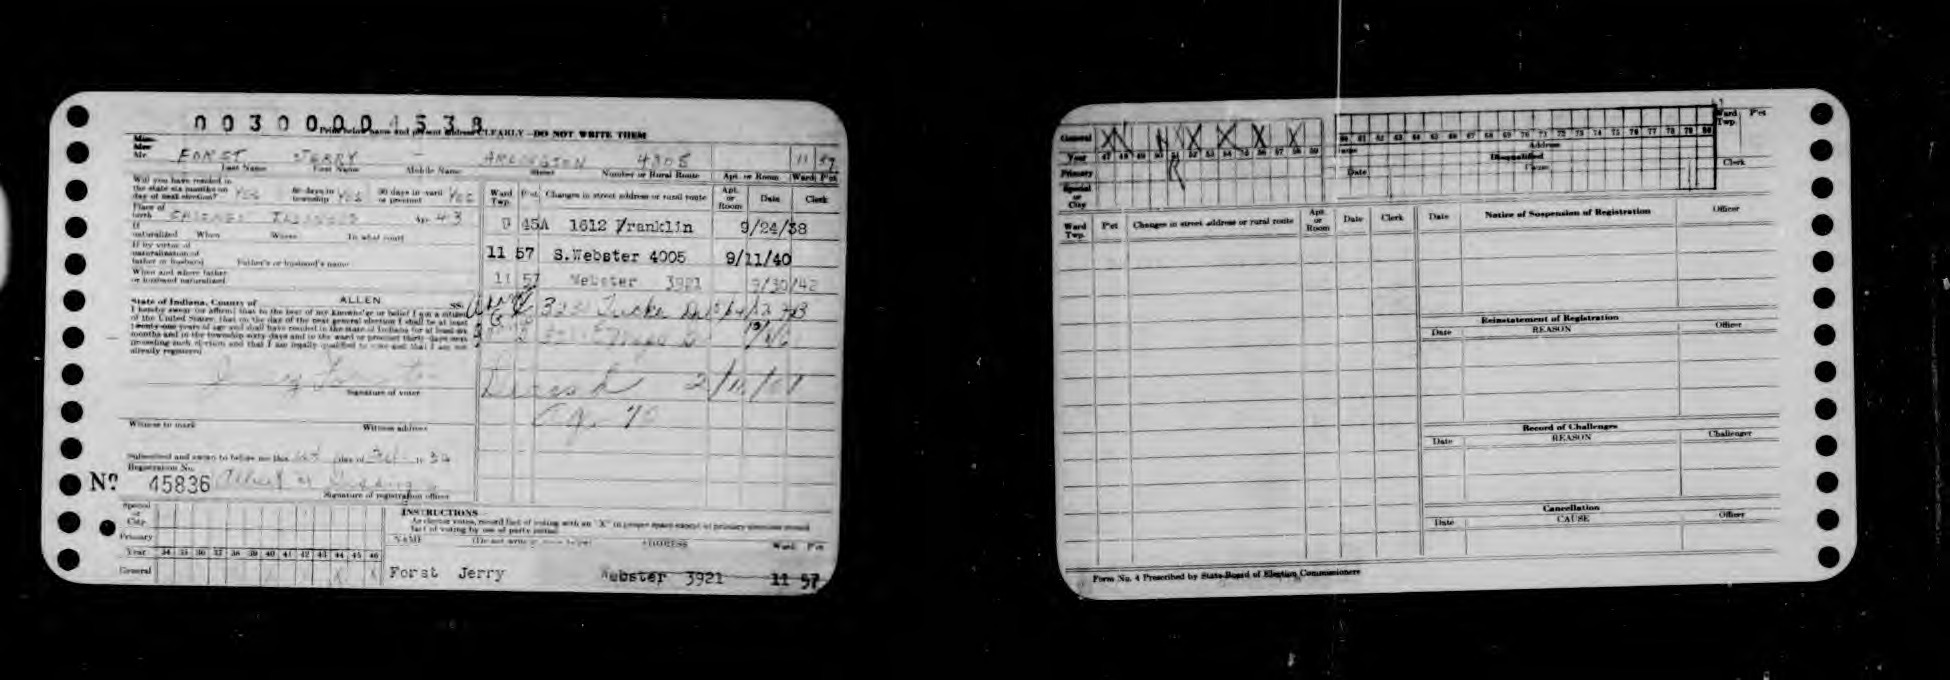 00300004538
Print below name and present address CLEARLY—DO NOT WRITE THEM
Miss
Mrs
Mr. FORST JERRY — ARLINGTON 4308 11 57
Last Name First Name Middle Name Street Number or Rural Route Apt. or Room Ward P'ct
Will you have resided in
the state six months on
day of next election? YES 60 days in township YES 30 days in ward or precinct YES
Place of
birth CHICAGO ILLINOIS Age 43
If
naturalized When Where In what court
If by virtue of
naturalization of
father or husband Father's or husband's name
When and where father
or husband naturalized
State of Indiana, County of ALLEN SS:
I hereby swear (or affirm) that to the best of my knowledge or belief I am a citizen
of the United States; that on the day of the next general election I shall be at least
twenty-one years of age and shall have resided in the state of Indiana for at least six
months and in the township sixty days and in the ward or precinct thirty days next
preceding such election and that I am legally qualified to vote and that I am not
already registered
Signature of voter
Witness to mark Witness address
Subscribed and sworn to before me this day of
Registration No.
No 45836
Signature of registration officer
Ward Twp. P'ct Changes in street address or rural route Apt. or Room Date Clerk
9 45A 1612 Franklin 9/24/38
11 57 S.Webster 4005 9/11/40
11 57 Webster 3921 9/30/42
Special
or
City
Primary
Year 34 35 36 37 38 39 40 41 42 43 44 45 46
General X X
INSTRUCTIONS
As elector votes, record fact of voting with an "X" in proper space except at primary elections record
fact of voting by use of party initial.
NAME (Do not write in space below) ADDRESS Ward P'ct
Forst Jerry Webster 3921 11 57
General X X X X X X X
Year 47 48 49 50 51 52 53 54 55 56 57 58 59
Primary R
Special
or
City
60 61 62 63 64 65 66 67 68 69 70 71 72 73 74 75 76 77 78 79 80
Name Address Ward Twp. P'ct
Disqualified
Date Cause Clerk
Ward Twp. P'ct Changes in street address or rural route Apt. or Room Date Clerk
Date Notice of Suspension of Registration Officer
Reinstatement of Registration
Date REASON Officer
Record of Challenges
Date REASON Challenger
Cancellation
Date CAUSE Officer
Form No. 4 Prescribed by State Board of Election Commissioners